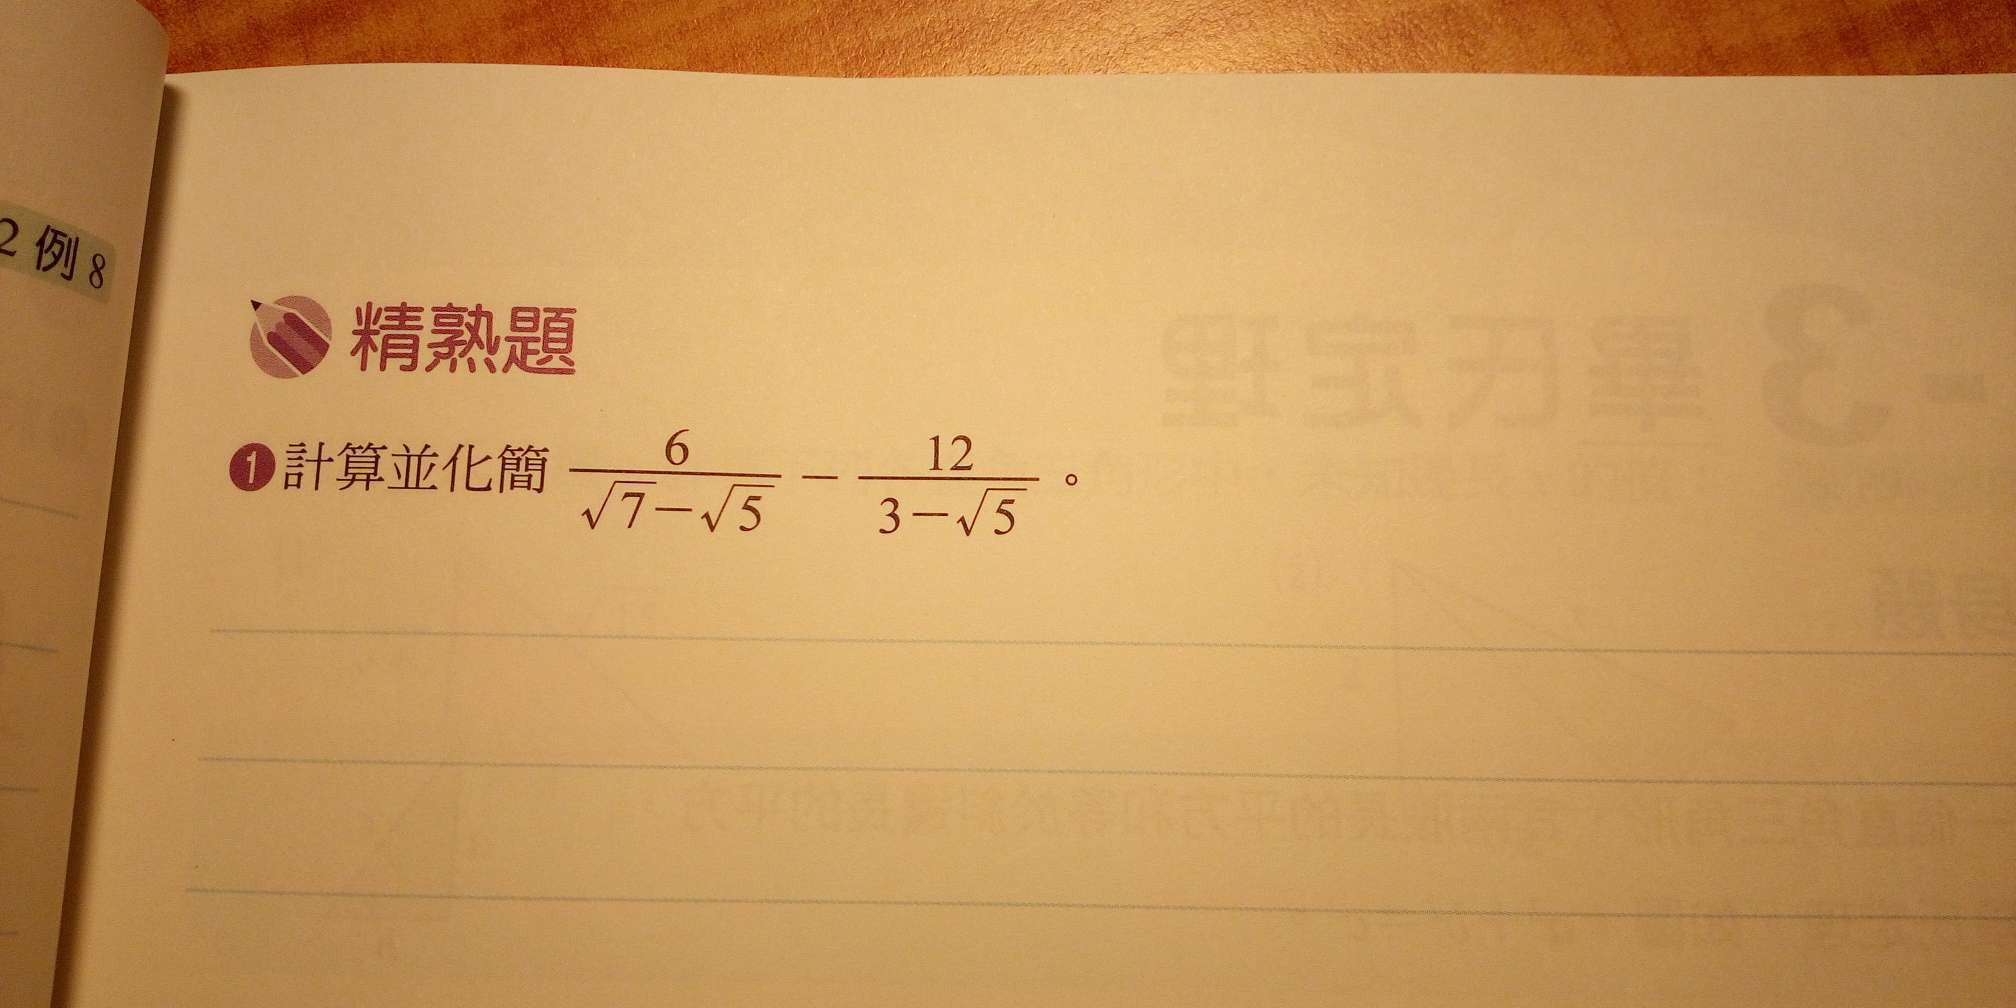 2 例 8
精熟題
❶ 計算並化簡 \frac{6}{\sqrt{7}-\sqrt{5}} - \frac{12}{3-\sqrt{5}} 。